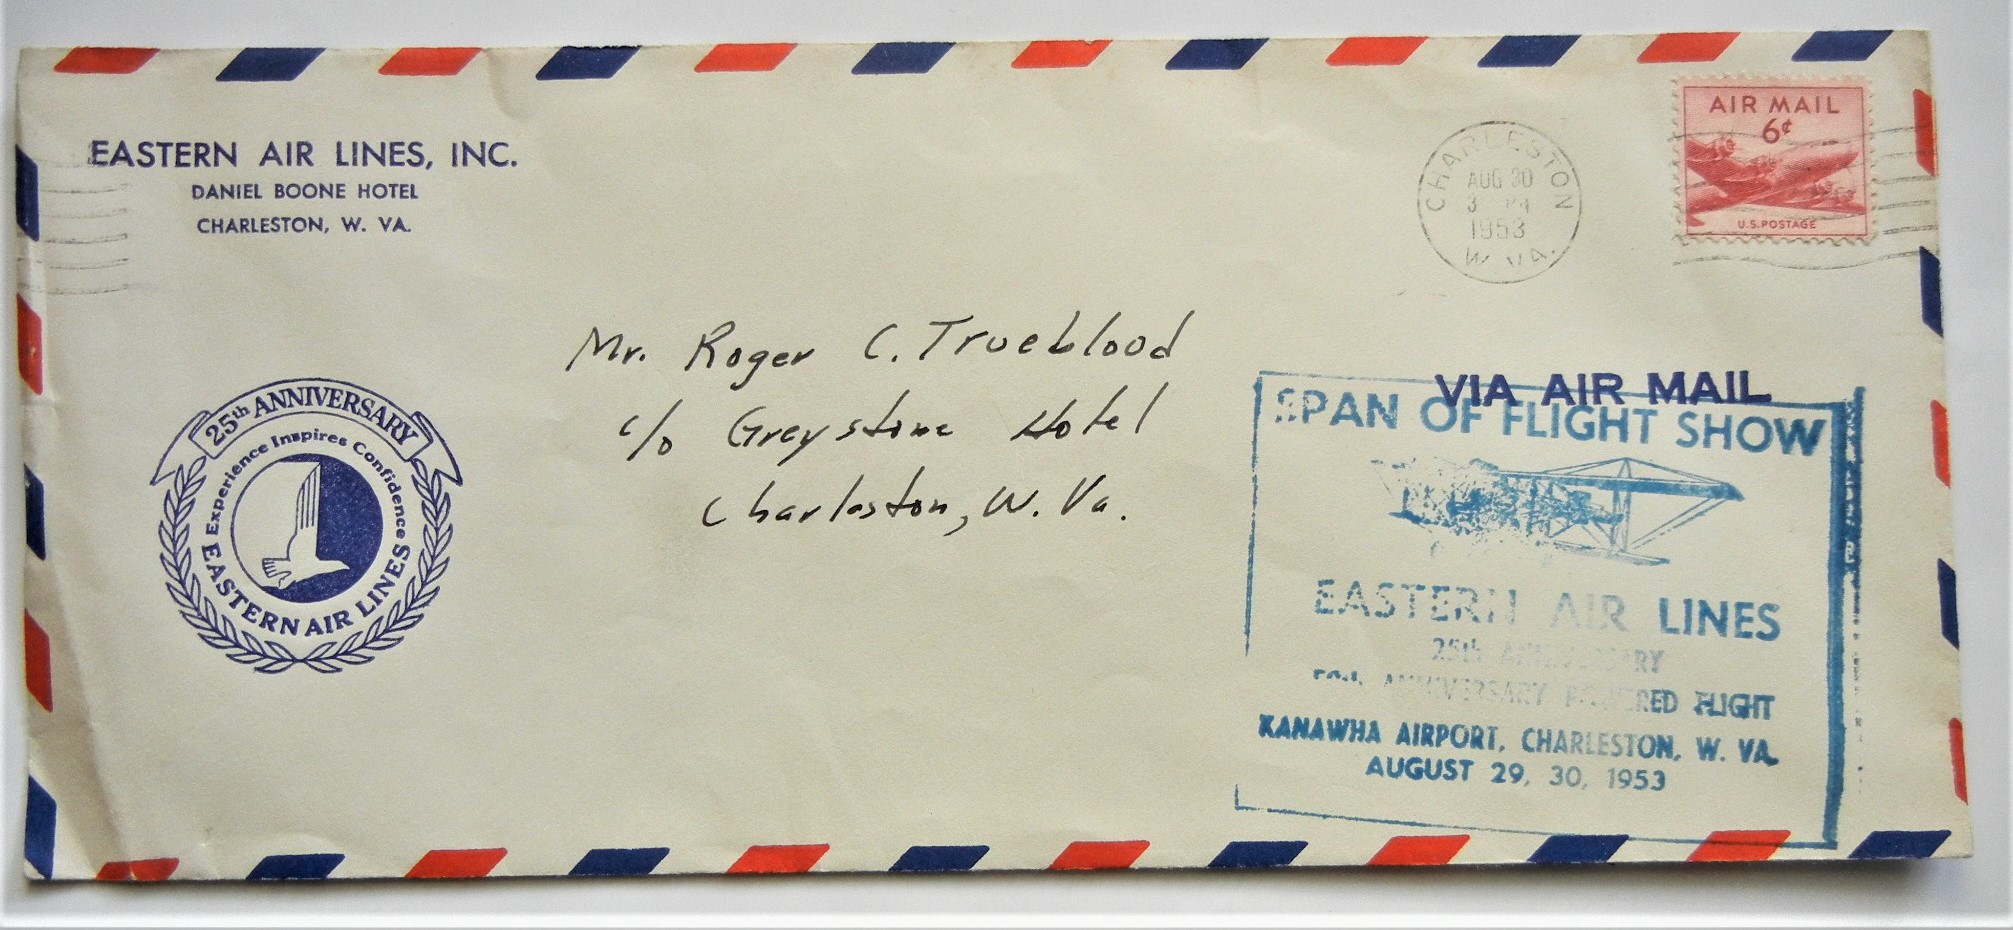 EASTERN AIR LINES, INC.
DANIEL BOONE HOTEL
CHARLESTON, W. VA.
CHARLESTON
AUG 30
3
1953
W. VA.
AIR MAIL
6¢
U.S. POSTAGE
Mr. Roger C. Trueblood
c/o Greystone Hotel
Charleston, W. Va.
25th ANNIVERSARY
Experience Inspires Confidence
EASTERN AIR LINES
VIA AIR MAIL
SPAN OF FLIGHT SHOW
EASTERN AIR LINES
25th ANNIVERSARY
ANNIVERSARY POWERED FLIGHT
KANAWHA AIRPORT, CHARLESTON, W. VA.
AUGUST 29, 30, 1953